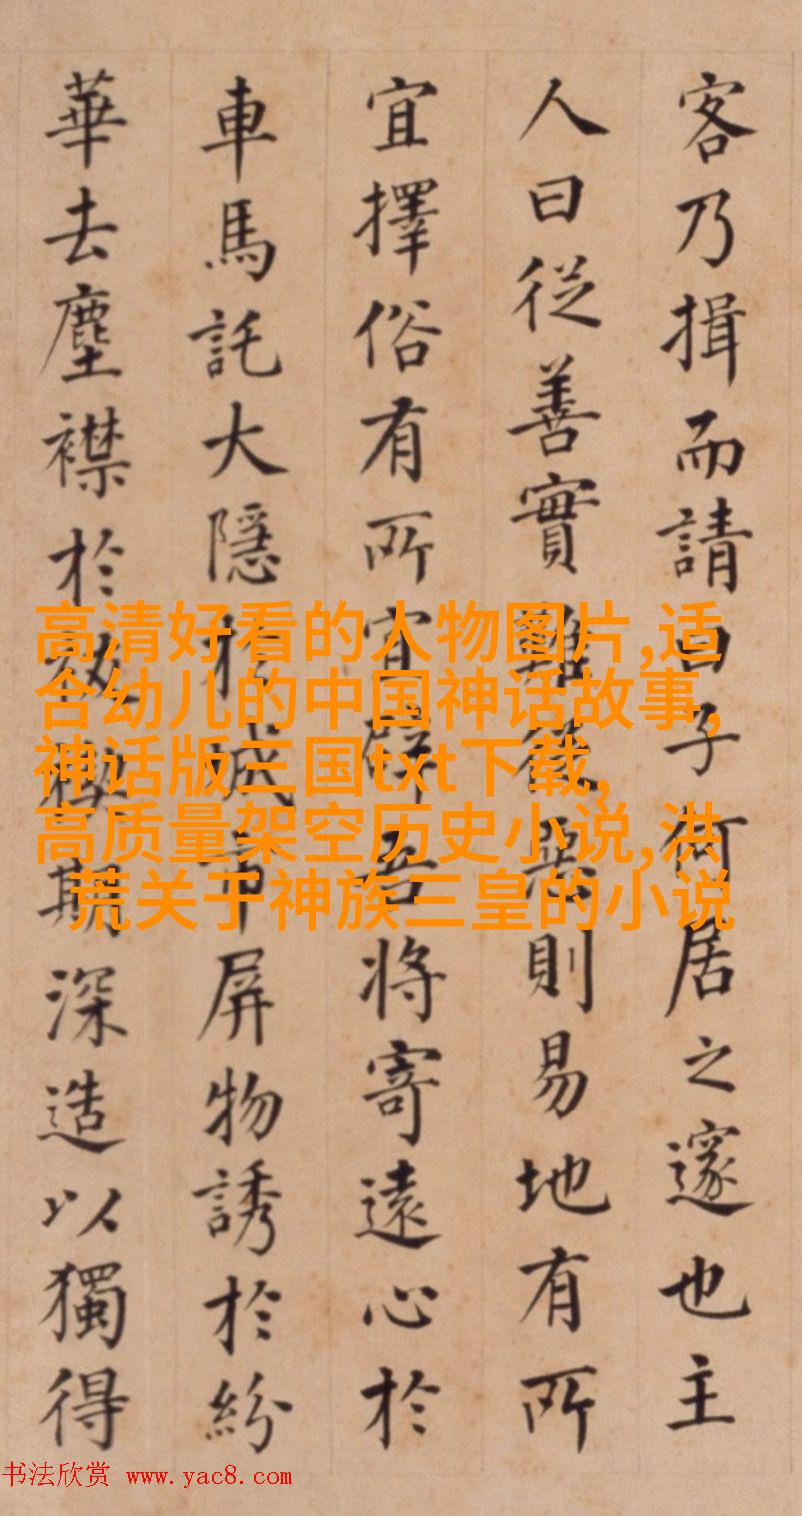 客乃揖而請曰子何居之邃也主
人曰從善實難從惡則易地有所
宜擇俗有所宜辟吾將寄遠心於
車馬託大隱於城市屏物誘於紛
華去塵襟於期深造以獨得
高清好看的人物图片,适
合幼儿的中国神话故事,
神话版三国txt下载,
高质量架空历史小说,洪
荒关于神族三皇的小说
书法欣赏 www.yac8.com